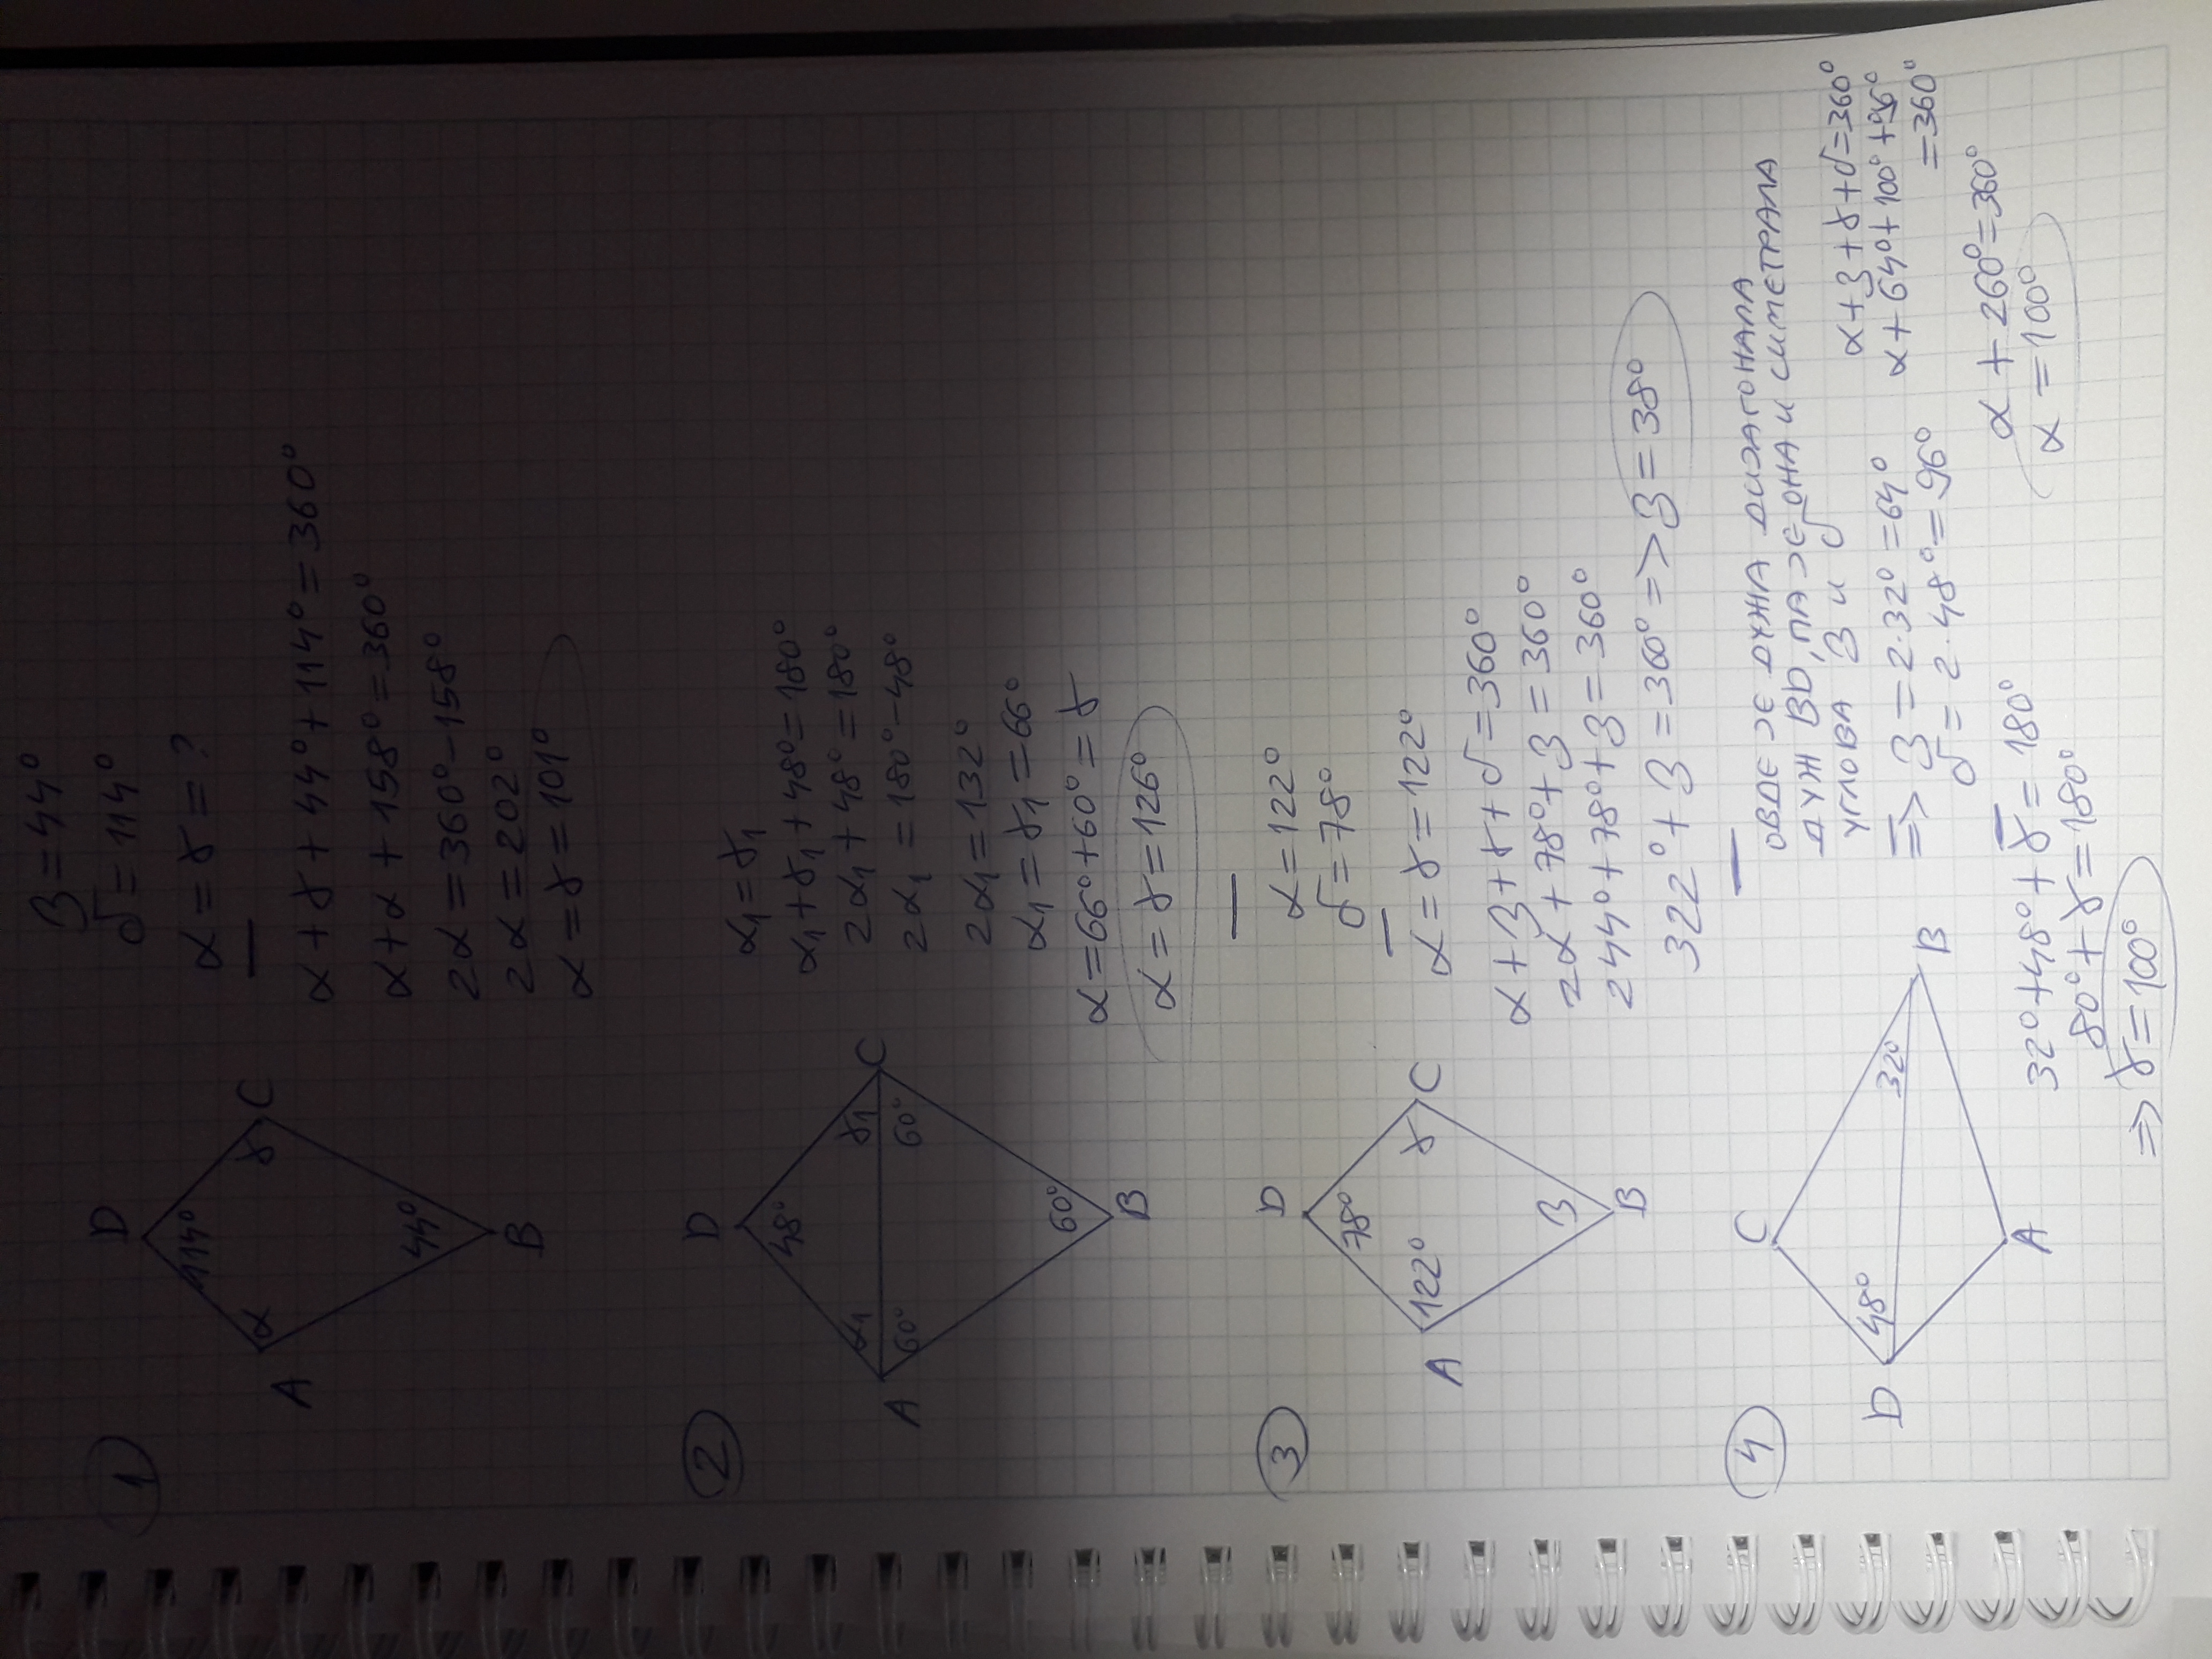 1
D
114°
α
γ
A
C
44°
B
β=44°
δ=114°
α=γ=?
α+γ+44°+114°=360°
α+α+158°=360°
2α=360°-158°
2α=202°
α=γ=101°
2
D
48°
α1
γ1
A
C
60°
60°
60°
B
α1=γ1
α1+γ1+48°=180°
2α1+48°=180°
2α1=180°-48°
2α1=132°
α1=γ1=66°
α=66°+60°=γ
α=γ=126°
3
D
78°
A
122°
γ
C
β
B
α=122°
δ=78°
α=γ=122°
α+β+γ+δ=360°
2α+78°+β=360°
244°+78°+β=360°
322°+β=360° => β=38°
4
C
D
48°
32°
B
A
ОВДЕ ЈЕ ДУЖА ДИЈАГОНАЛА
ДУЖ BD, ПА ЈЕ ОНА И СИМЕТРАЛА
УГЛОВА β И δ
=> β=2·32°=64°
δ=2·48°=96°
32°+48°+γ=180°
80°+γ=180°
=> γ=100°
α+β+γ+δ=360°
α+64°+100°+96°
=360°
α+260°=360°
α=100°